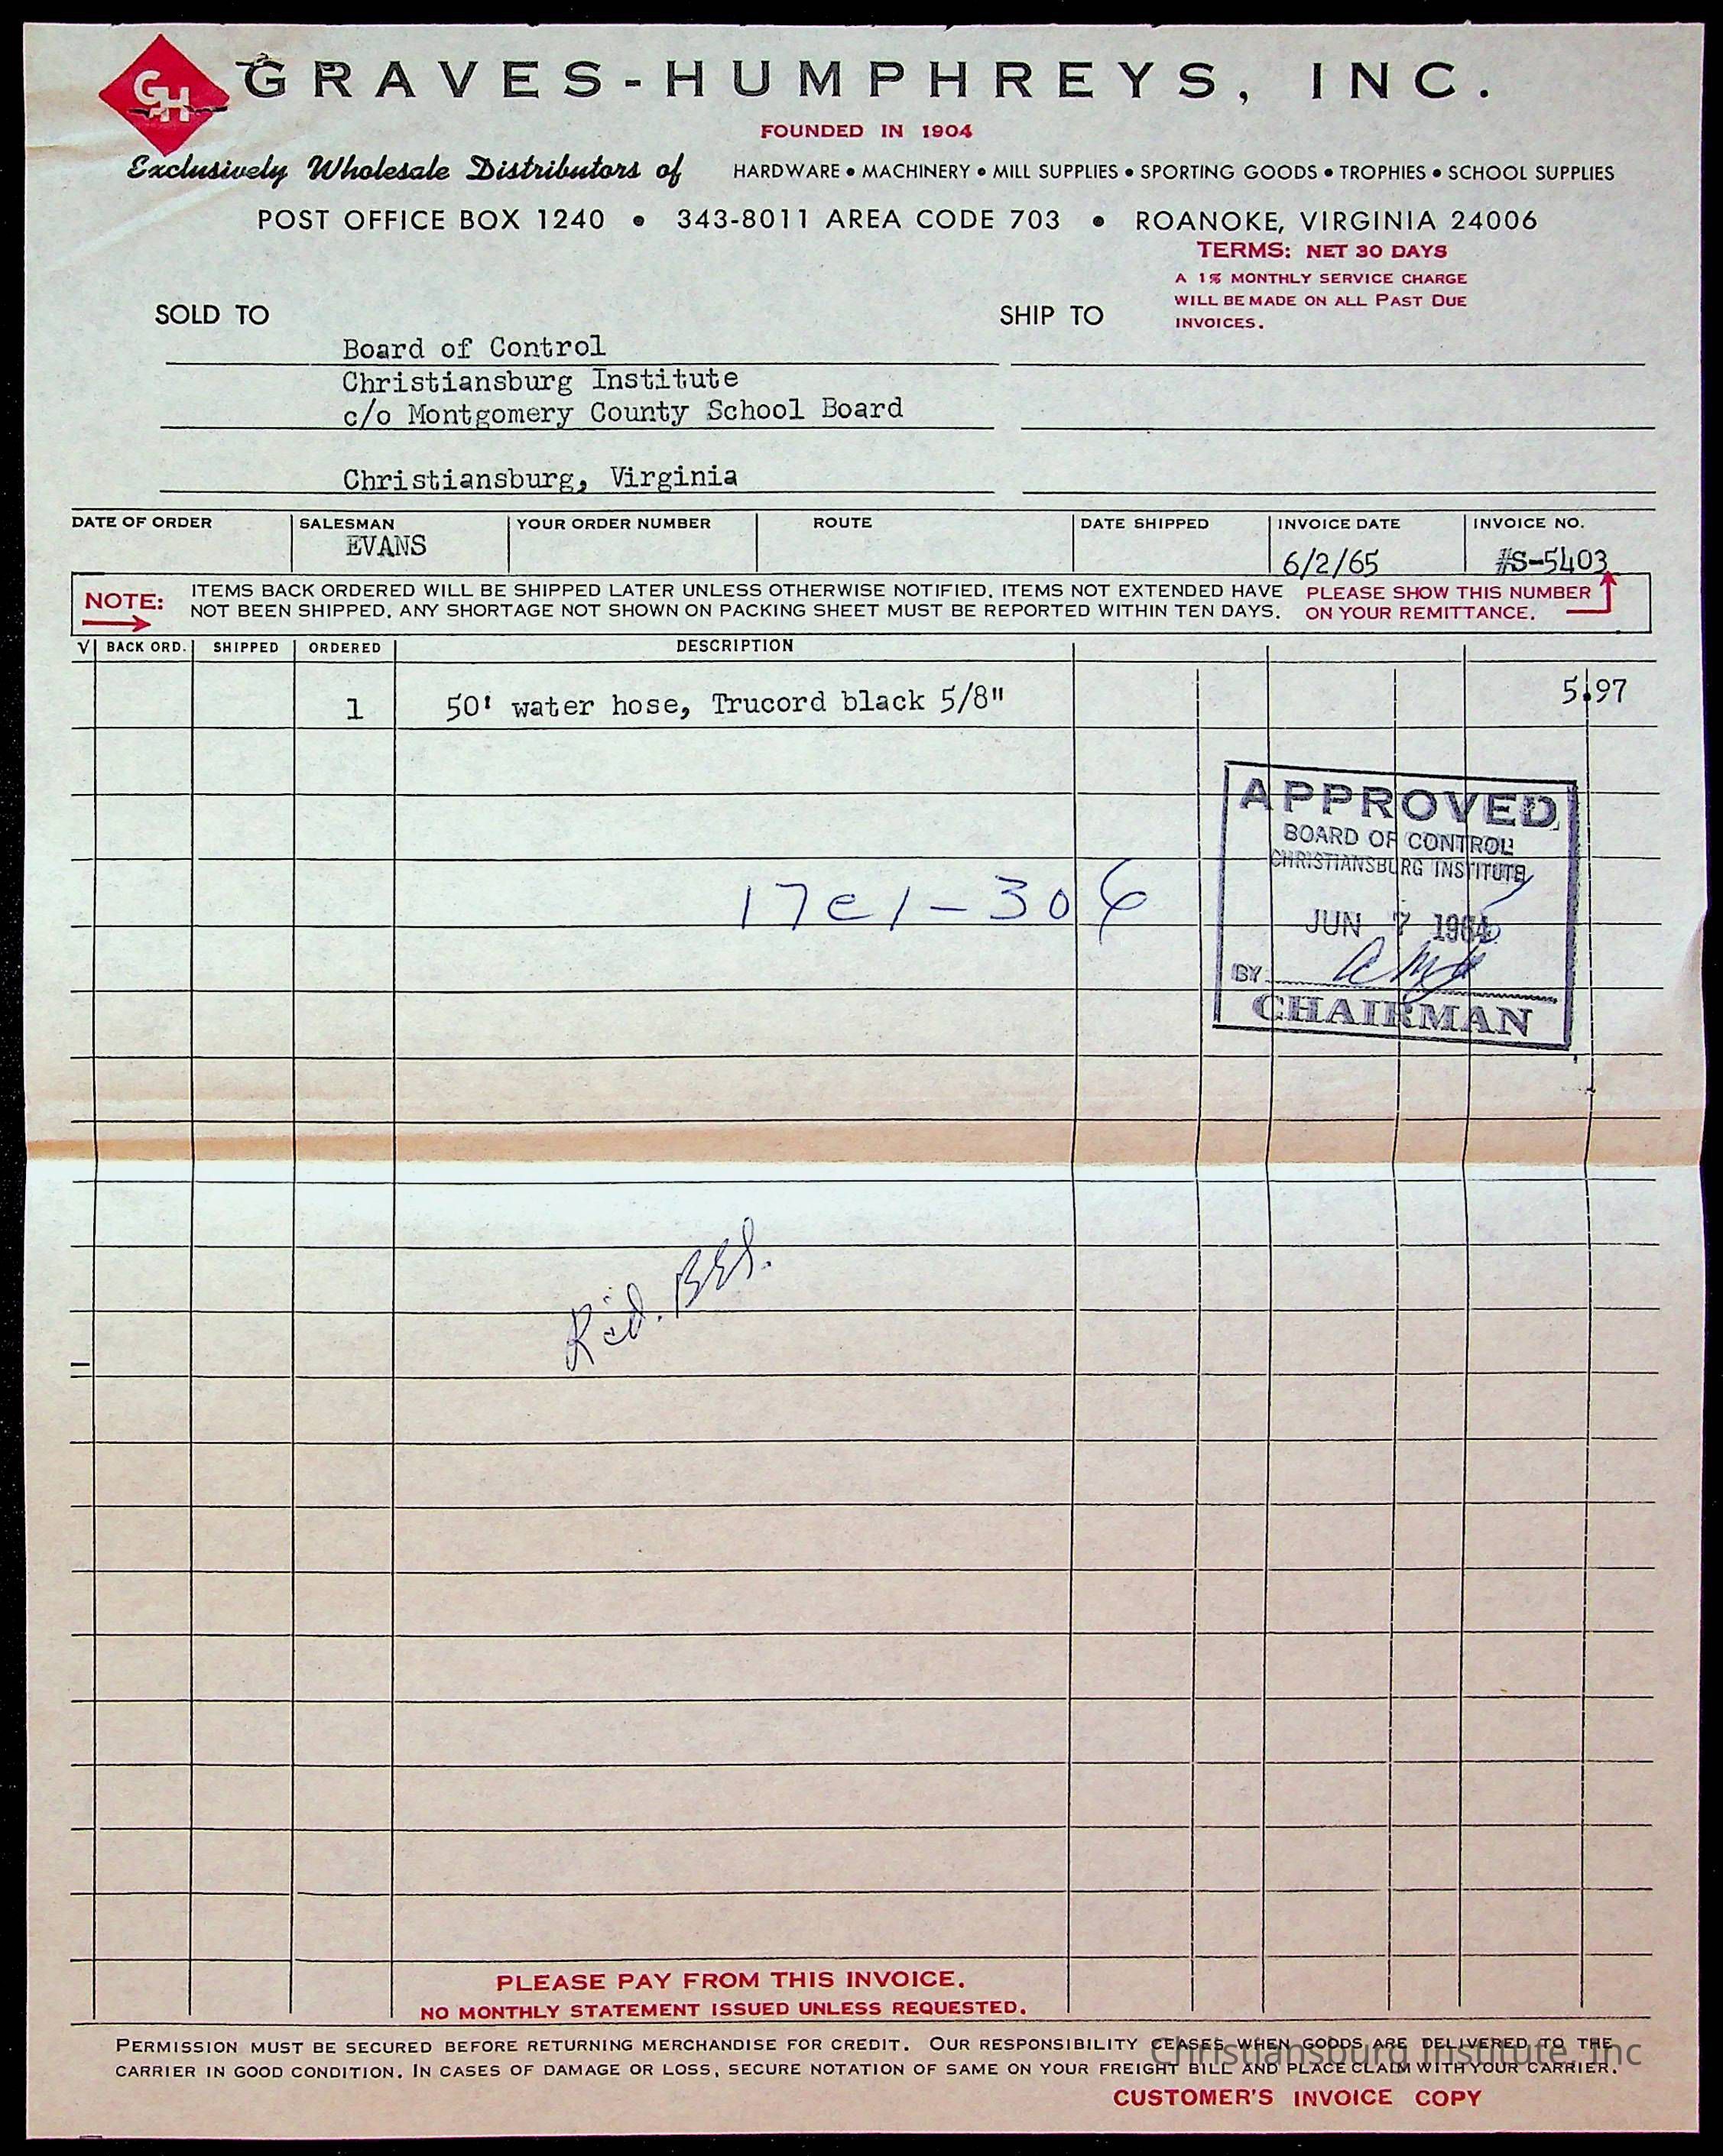 GH GRAVES-HUMPHREYS, INC.
FOUNDED IN 1904
Exclusively Wholesale Distributors of HARDWARE • MACHINERY • MILL SUPPLIES • SPORTING GOODS • TROPHIES • SCHOOL SUPPLIES
POST OFFICE BOX 1240 • 343-8011 AREA CODE 703 • ROANOKE, VIRGINIA 24006
TERMS: NET 30 DAYS
A 1% MONTHLY SERVICE CHARGE
WILL BE MADE ON ALL PAST DUE
INVOICES.
SOLD TO SHIP TO
Board of Control
Christiansburg Institute
c/o Montgomery County School Board
Christiansburg, Virginia
DATE OF ORDER SALESMAN YOUR ORDER NUMBER ROUTE DATE SHIPPED INVOICE DATE INVOICE NO.
EVANS 6/2/65 #S-5403
NOTE: ITEMS BACK ORDERED WILL BE SHIPPED LATER UNLESS OTHERWISE NOTIFIED. ITEMS NOT EXTENDED HAVE PLEASE SHOW THIS NUMBER
NOT BEEN SHIPPED. ANY SHORTAGE NOT SHOWN ON PACKING SHEET MUST BE REPORTED WITHIN TEN DAYS. ON YOUR REMITTANCE.
√ BACK ORD. SHIPPED ORDERED DESCRIPTION
1 50' water hose, Trucord black 5/8" 5.97
APPROVED
BOARD OF CONTROL
CHRISTIANSBURG INSTITUTE
17e1-306
JUN 7 1965
BY
CHAIRMAN
Rcd.
PLEASE PAY FROM THIS INVOICE.
NO MONTHLY STATEMENT ISSUED UNLESS REQUESTED.
PERMISSION MUST BE SECURED BEFORE RETURNING MERCHANDISE FOR CREDIT. OUR RESPONSIBILITY CEASES WHEN GOODS ARE DELIVERED TO THE
CARRIER IN GOOD CONDITION. IN CASES OF DAMAGE OR LOSS, SECURE NOTATION OF SAME ON YOUR FREIGHT BILL AND PLACE CLAIM WITH YOUR CARRIER.
Christiansburg Institute, Inc
CUSTOMER'S INVOICE COPY